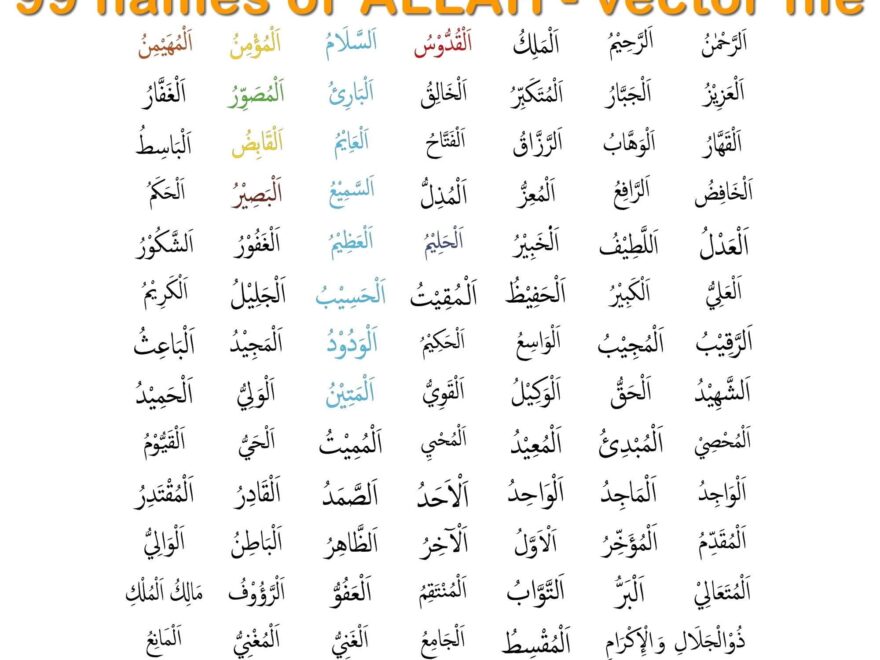 99 names of ALLAH - vector file
اَلرَّحْمٰنُ اَلرَّحِيْمُ اَلْمَلِكُ اَلْقُدُّوْسُ اَلسَّلَامُ اَلْمُؤْمِنُ اَلْمُهَيْمِنُ
اَلْعَزِيْزُ اَلْجَبَّارُ اَلْمُتَكَبِّرُ اَلْخَالِقُ اَلْبَارِئُ اَلْمُصَوِّرُ اَلْغَفَّارُ
اَلْقَهَّارُ اَلْوَهَّابُ اَلرَّزَّاقُ اَلْفَتَّاحُ اَلْعَايْمُ اَلْقَابِضُ اَلْبَاسِطُ
اَلْخَافِضُ اَلرَّافِعُ اَلْمُعِزُّ اَلْمُذِلُّ اَلسَّمِيْعُ اَلْبَصِيْرُ اَلْحَكَمُ
اَلْعَدْلُ اَللَّطِيْفُ اَلْخَبِيْرُ اَلْحَلِيْمُ اَلْعَظِيْمُ اَلْغَفُوْرُ اَلشَّكُوْرُ
اَلْعَلِيُّ اَلْكَبِيْرُ اَلْحَفِيْظُ اَلْمُقِيْتُ اَلْحَسِيْبُ اَلْجَلِيْلُ اَلْكَرِيْمُ
اَلرَّقِيْبُ اَلْمُجِيْبُ اَلْوَاسِعُ اَلْحَكِيْمُ اَلْوَدُوْدُ اَلْمَجِيْدُ اَلْبَاعِثُ
اَلشَّهِيْدُ اَلْحَقُّ اَلْوَكِيْلُ اَلْقَوِيُّ اَلْمَتِيْنُ اَلْوَلِيُّ اَلْحَمِيْدُ
اَلْمُحْصِيْ اَلْمُبْدِئُ اَلْمُعِيْدُ اَلْمُحْيِ اَلْمُمِيْتُ اَلْحَيُّ اَلْقَيُّوْمُ
اَلْوَاجِدُ اَلْمَاجِدُ اَلْوَاحِدُ اَلْاَحَدُ اَلصَّمَدُ اَلْقَادِرُ اَلْمُقْتَدِرُ
اَلْمُقَدِّمُ اَلْمُؤَخِّرُ اَلْاَوَّلُ اَلْآخِرُ اَلظَّاهِرُ اَلْبَاطِنُ اَلْوَالِيُّ
اَلْمُتَعَالِيْ اَلْبَرُّ اَلتَّوَّابُ اَلْمُنْتَقِمُ اَلْعَفُوُّ اَلْرَّؤُوْفُ مَالِكُ اَلْمُلْكِ
ذُوْالْجَلَالِ وَالْاِكْرَامِ اَلْمُقْسِطُ اَلْجَامِعُ اَلْغَنِيُّ اَلْمُغْنِيُّ اَلْمَانِعُ